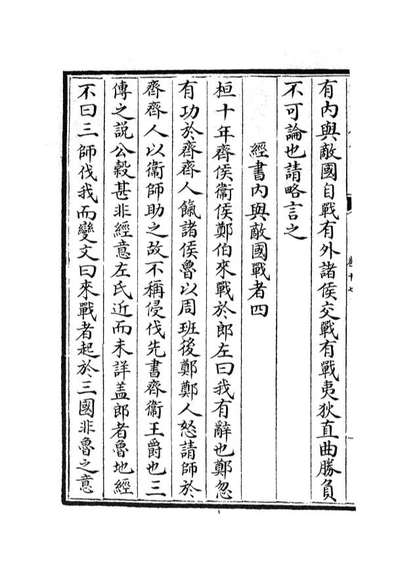 有内與敵國自戰有外諸侯交戰有戰夷狄直曲勝負
不可論也請略言之
經書内與敵國戰者四
桓十年齊侯衛侯鄭伯來戰於郎左曰我有辭也鄭忽
有功於齊齊人餼諸侯魯以周班後鄭鄭人怒請師於
齊齊人以衛師助之故不稱侵伐先書齊衛王爵也三
傳之説公穀甚非經意左氏近而未詳盖郎者魯地經
不曰三師伐我而變文曰來戰者起於三國非魯之意